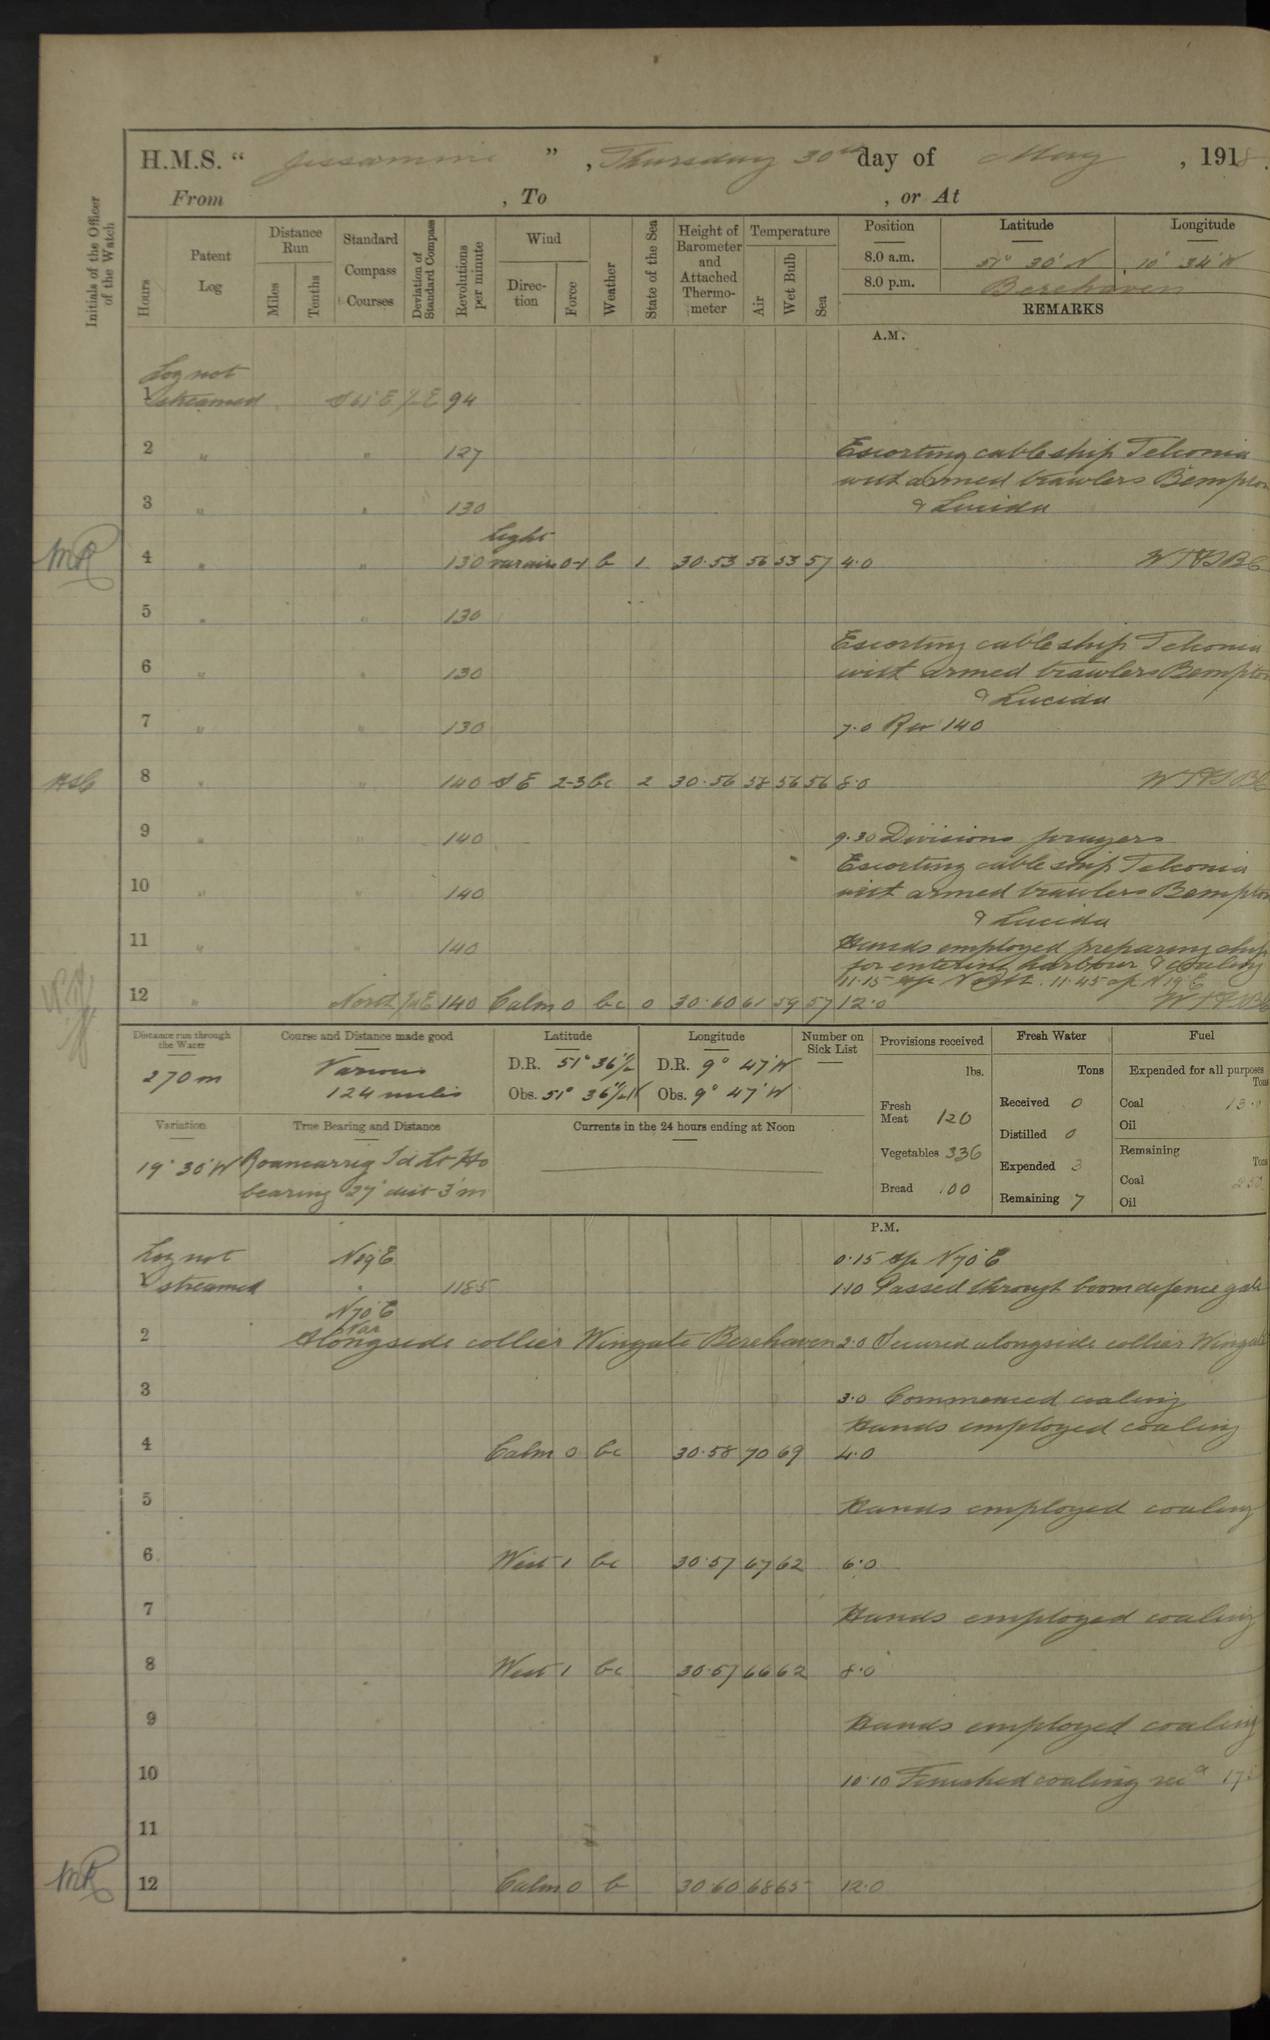 H.M.S. " Jessamine " , Thursday 30th day of May , 1918.
From , To , or At
Initials of the Officer of the Watch
Hours
Patent Log
Distance Run
Miles
Tenths
Standard Compass Courses
Deviation of Standard Compass
Revolutions per minute
Wind
Direction
Force
Weather
State of the Sea
Height of Barometer and Attached Thermometer
Temperature
Air
Wet Bulb
Sea
Position Latitude Longitude
8.0 a.m. 51° 30' N 10° 34' W
8.0 p.m. Berehaven
REMARKS
A.M.
Log not
1 streamed S 61° E ½ E 94
2 " " 127 Escorting cable ship Telconia
with armed trawlers Bempton
3 " " 130 & Lucida
light
MR 4 " " 130 var airs 0-1 b 1 30.53 56 53 57 4.0
5 " " 130
Escorting cable ship Telconia
6 " " 130 with armed trawlers Bempton
& Lucida
7 " " 130 7.0 Rev 140
8 " " 140 S E 2-3 bc 2 30.56 58 56 56 8.0
9 " " 140 9.30 Divisions prayers
Escorting cable ship Telconia
10 " " 140 with armed trawlers Bempton
& Lucida
11 " " 140 Hands employed preparing ship
for entering harbour & coaling
11.15 a/c North. 11.45 a/c N 19° E
12 " North 140 Calm 0 bc 0 30.60 61 59 57 12.0
Distance run through the Water
270 m
Course and Distance made good
Various
124 miles
Latitude
D.R. 51° 36' ½
Obs. 51° 36' ½ N
Longitude
D.R. 9° 47' W
Obs. 9° 47' W
Number on Sick List
Provisions received
lbs.
Fresh Meat 120
Vegetables 336
Bread 100
Fresh Water
Tons
Received 0
Distilled 0
Expended 3
Remaining 7
Fuel
Expended for all purposes
Tons
Coal 13.0
Oil
Remaining
Tons
Coal 250
Oil
Variation
19° 30' W
True Bearing and Distance
Roancarrig Id Lt Ho
bearing 27° dist 3' m
Currents in the 24 hours ending at Noon
P.M.
Log not N 19° E 0.15 a/c N 70° E
1 streamed " 118.5 1.10 Passed through boom defence gate
N 70° E
Var
2 Alongside collier Wingate Berehaven 2.0 Secured alongside collier Wingate
3 3.0 Commenced coaling
Hands employed coaling
4 Calm 0 bc 30.58 70 69 4.0
5 Hands employed coaling
6 West 1 bc 30.57 67 62 6.0
7 Hands employed coaling
8 West 1 bc 30.57 66 62 8.0
9 Hands employed coaling
10 10.10 Finished coaling recd
11
MR 12 Calm 0 b 30.60 68 65 12.0